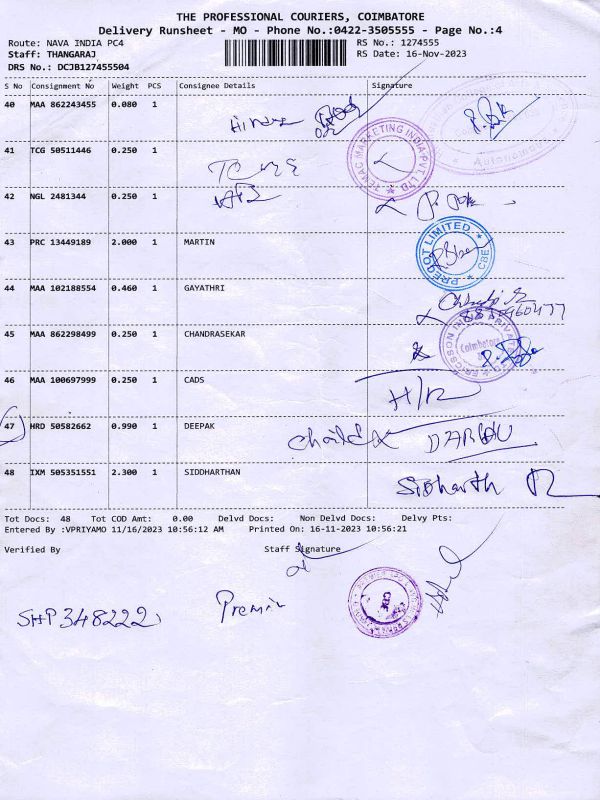 THE PROFESSIONAL COURIERS, COIMBATORE
Delivery Runsheet - MO - Phone No.:0422-3505555 - Page No.:4
Route: NAVA INDIA PC4 RS No.: 1274555
Staff: THANGARAJ RS Date: 16-Nov-2023
DRS No.: DCJB127455504
S No Consignment No Weight PCS Consignee Details Signature
40 MAA 862243455 0.080 1
41 TCG 50511446 0.250 1
TEMAC MARKETING INDIA PVT. LTD
42 NGL 2481344 0.250 1
43 PRC 13449189 2.000 1 MARTIN
PRECOT LIMITED CBE
44 MAA 102188554 0.460 1 GAYATHRI
45 MAA 862298499 0.250 1 CHANDRASEKAR
ERICSSON INDIA PRIVATE
Coimbatore
46 MAA 100697999 0.250 1 CADS
H/R
47 HRD 50582662 0.990 1 DEEPAK
48 IXM 505351551 2.300 1 SIDDHARTHAN
Sidharth
Tot Docs: 48 Tot COD Amt: 0.00 Delvd Docs: Non Delvd Docs: Delvy Pts:
Entered By :VPRIYAMO 11/16/2023 10:56:12 AM Printed On: 16-11-2023 10:56:21
Verified By Staff Signature
SHP348222